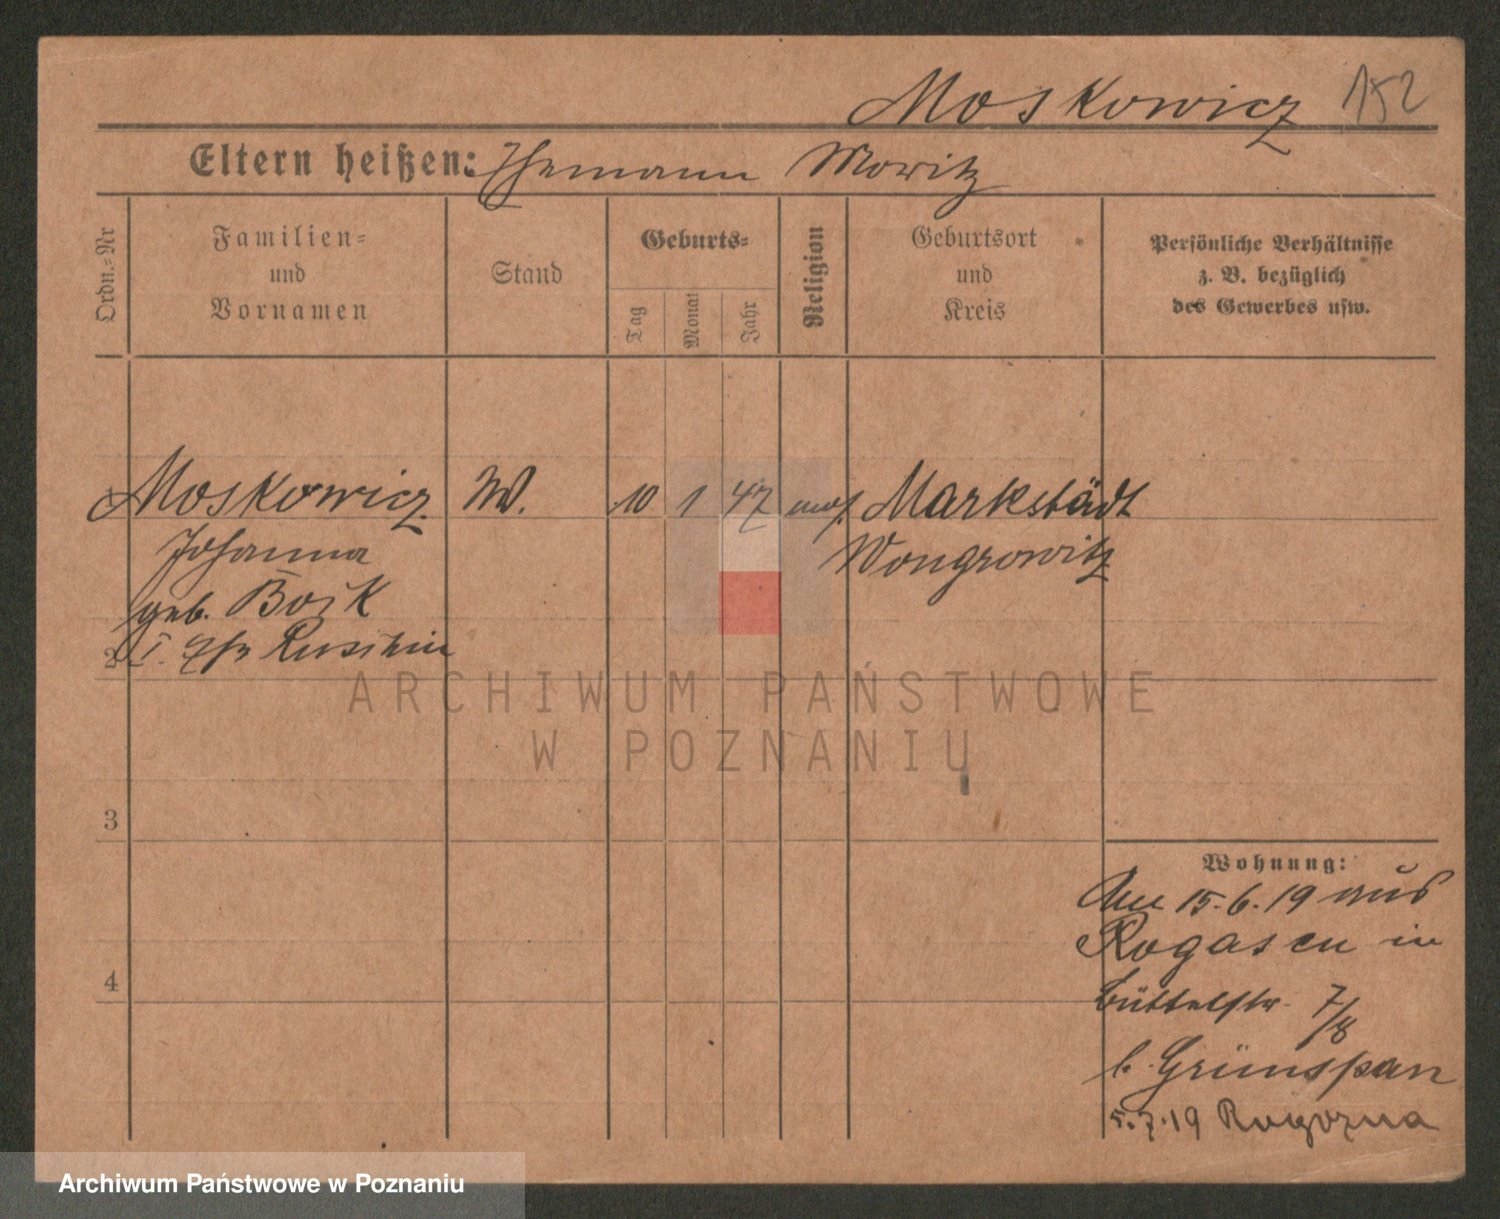 Moskowicz 152
Eltern heißen: Ehemann Moritz
Ordn.=Nr
Familien=
und
Vornamen
Stand
Geburts=
Tag
Monat
Jahr
Religion
Geburtsort
und
Kreis
Persönliche Verhältnisse
z. B. bezüglich
des Gewerbes usw.
Moskowicz W. 10 1 47 mos. Markstädt
Johanna Wongrowitz
geb. Boik
2 I.
ARCHIWUM PAŃSTWOWE
W POZNANIU
3
Wohnung:
Am 15.6.19 aus
Rogasen in
4
Büttelstr. 7/8
b. Grünspan
5.7.19 Rogozna
Archiwum Państwowe w Poznaniu